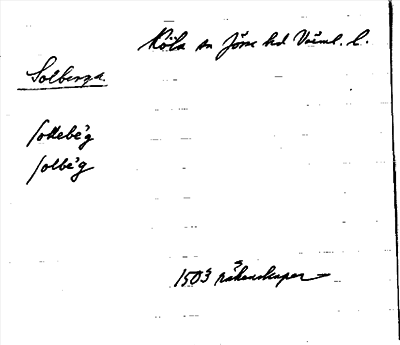 Köla sn Jösse hd Värml. l.
Solberga.
sollebä'g
solbä'g
1503 räkenskaper